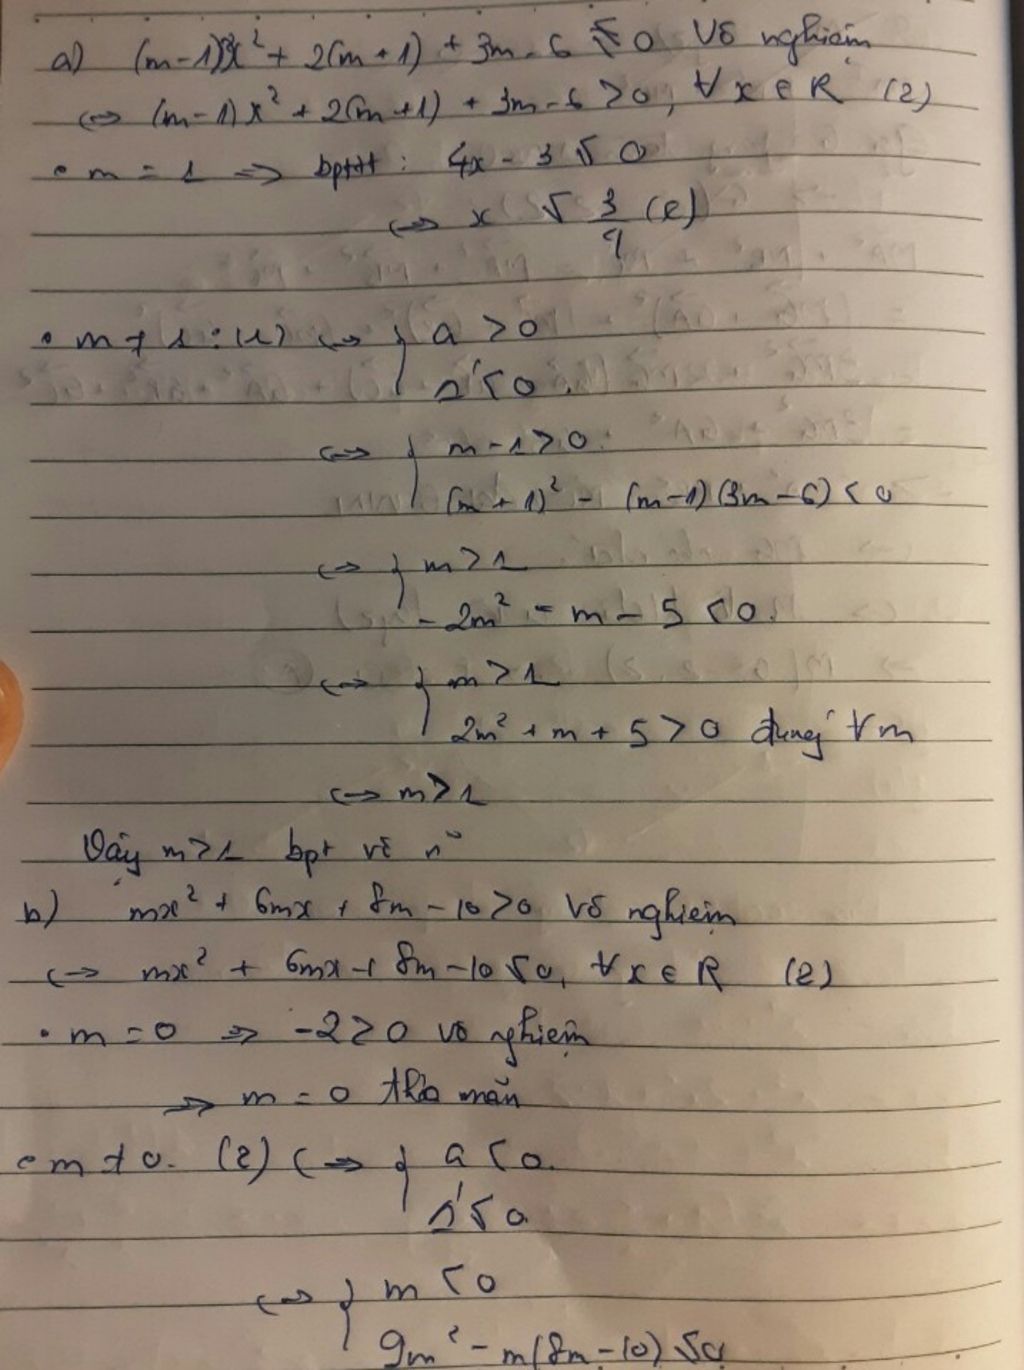 a) (m-1)x² + 2(m+1) + 3m - 6 ≤ 0 Vô nghiệm
⇔ (m-1)x² + 2(m+1) + 3m - 6 > 0, ∀x ∈ R (2)
• m = 1 ⇒ bpttt : 4x - 3 ≤ 0
⇔ x ≤ 3/4 (l)
• m ≠ 1 : (1) ⇔ { a > 0
Δ' < 0.
⇔ { m - 1 > 0.
(m+1)² - (m-1)(3m-6) < 0
⇔ { m > 1
-2m² - m - 5 < 0.
⇔ { m > 1
2m² + m + 5 > 0 đúng ∀m
⇔ m > 1
Vậy m > 1 bpt vô n⁰
b) mx² + 6mx + 8m - 10 > 0 Vô nghiệm
⇔ mx² + 6mx + 8m - 10 ≤ 0, ∀x ∈ R (2)
• m = 0 ⇒ -2 ≥ 0 vô nghiệm
⇒ m = 0 thỏa mãn
• m ≠ 0. (2) ⇔ { a < 0.
Δ' ≤ 0
⇔ { m < 0
9m² - m(8m - 10) ≤ 0